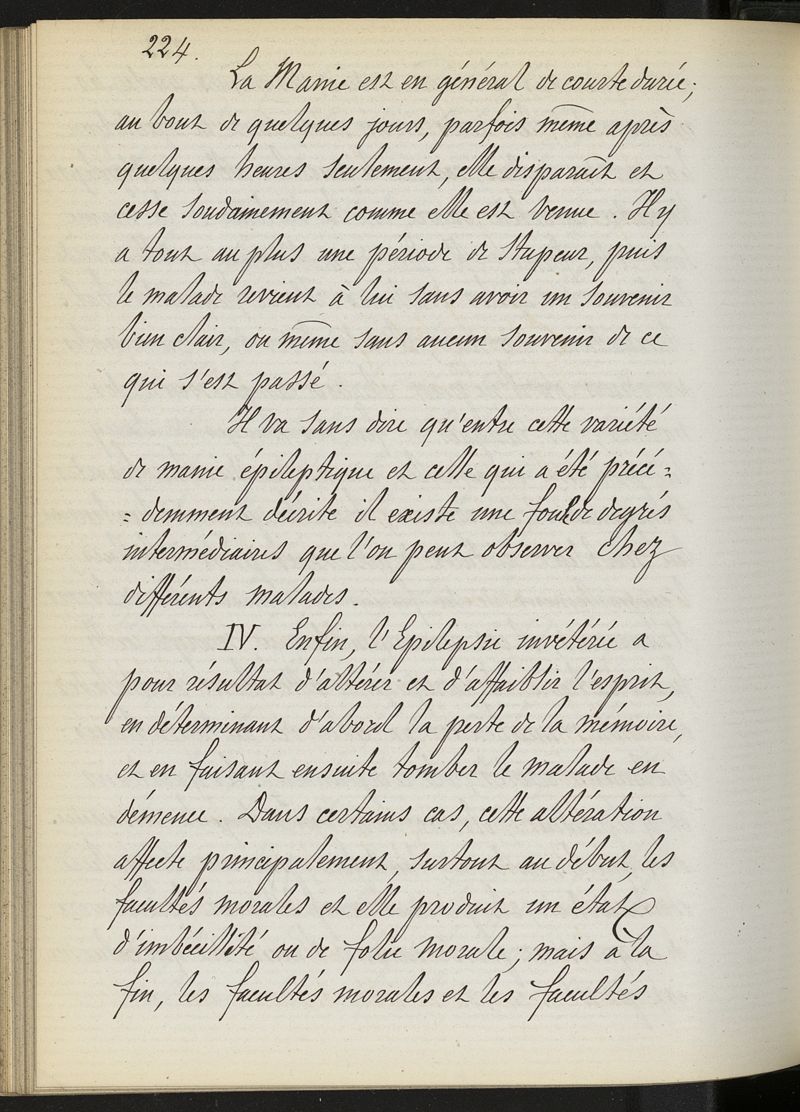 224.
La Manie est en général de courte durée;
au bout de quelques jours, parfois même après
quelques heures seulement, elle disparaît et
cesse soudainement comme elle est venue. Il y
a tout au plus une période de stupeur, puis
le malade revient à lui sans avoir un souvenir
bien clair, ou même sans aucun souvenir de ce
qui s'est passé.
Il va sans dire qu'entre cette variété
de manie épileptique et celle qui a été précé=
=demment décrite il existe une foule de degrés
intermédiaires que l'on peut observer chez
différents malades.
IV. Enfin, l'Epilepsie invétérée a
pour résultat d'altérer et d'affaiblir l'esprit,
en déterminant d'abord la perte de la mémoire,
et en faisant ensuite tomber le malade en
démence. Dans certains cas, cette altération
affecte principalement, surtout au début, les
facultés morales et elle produit un état
d'imbécillité ou de folie morale; mais à la
fin, les facultés morales et les facultés